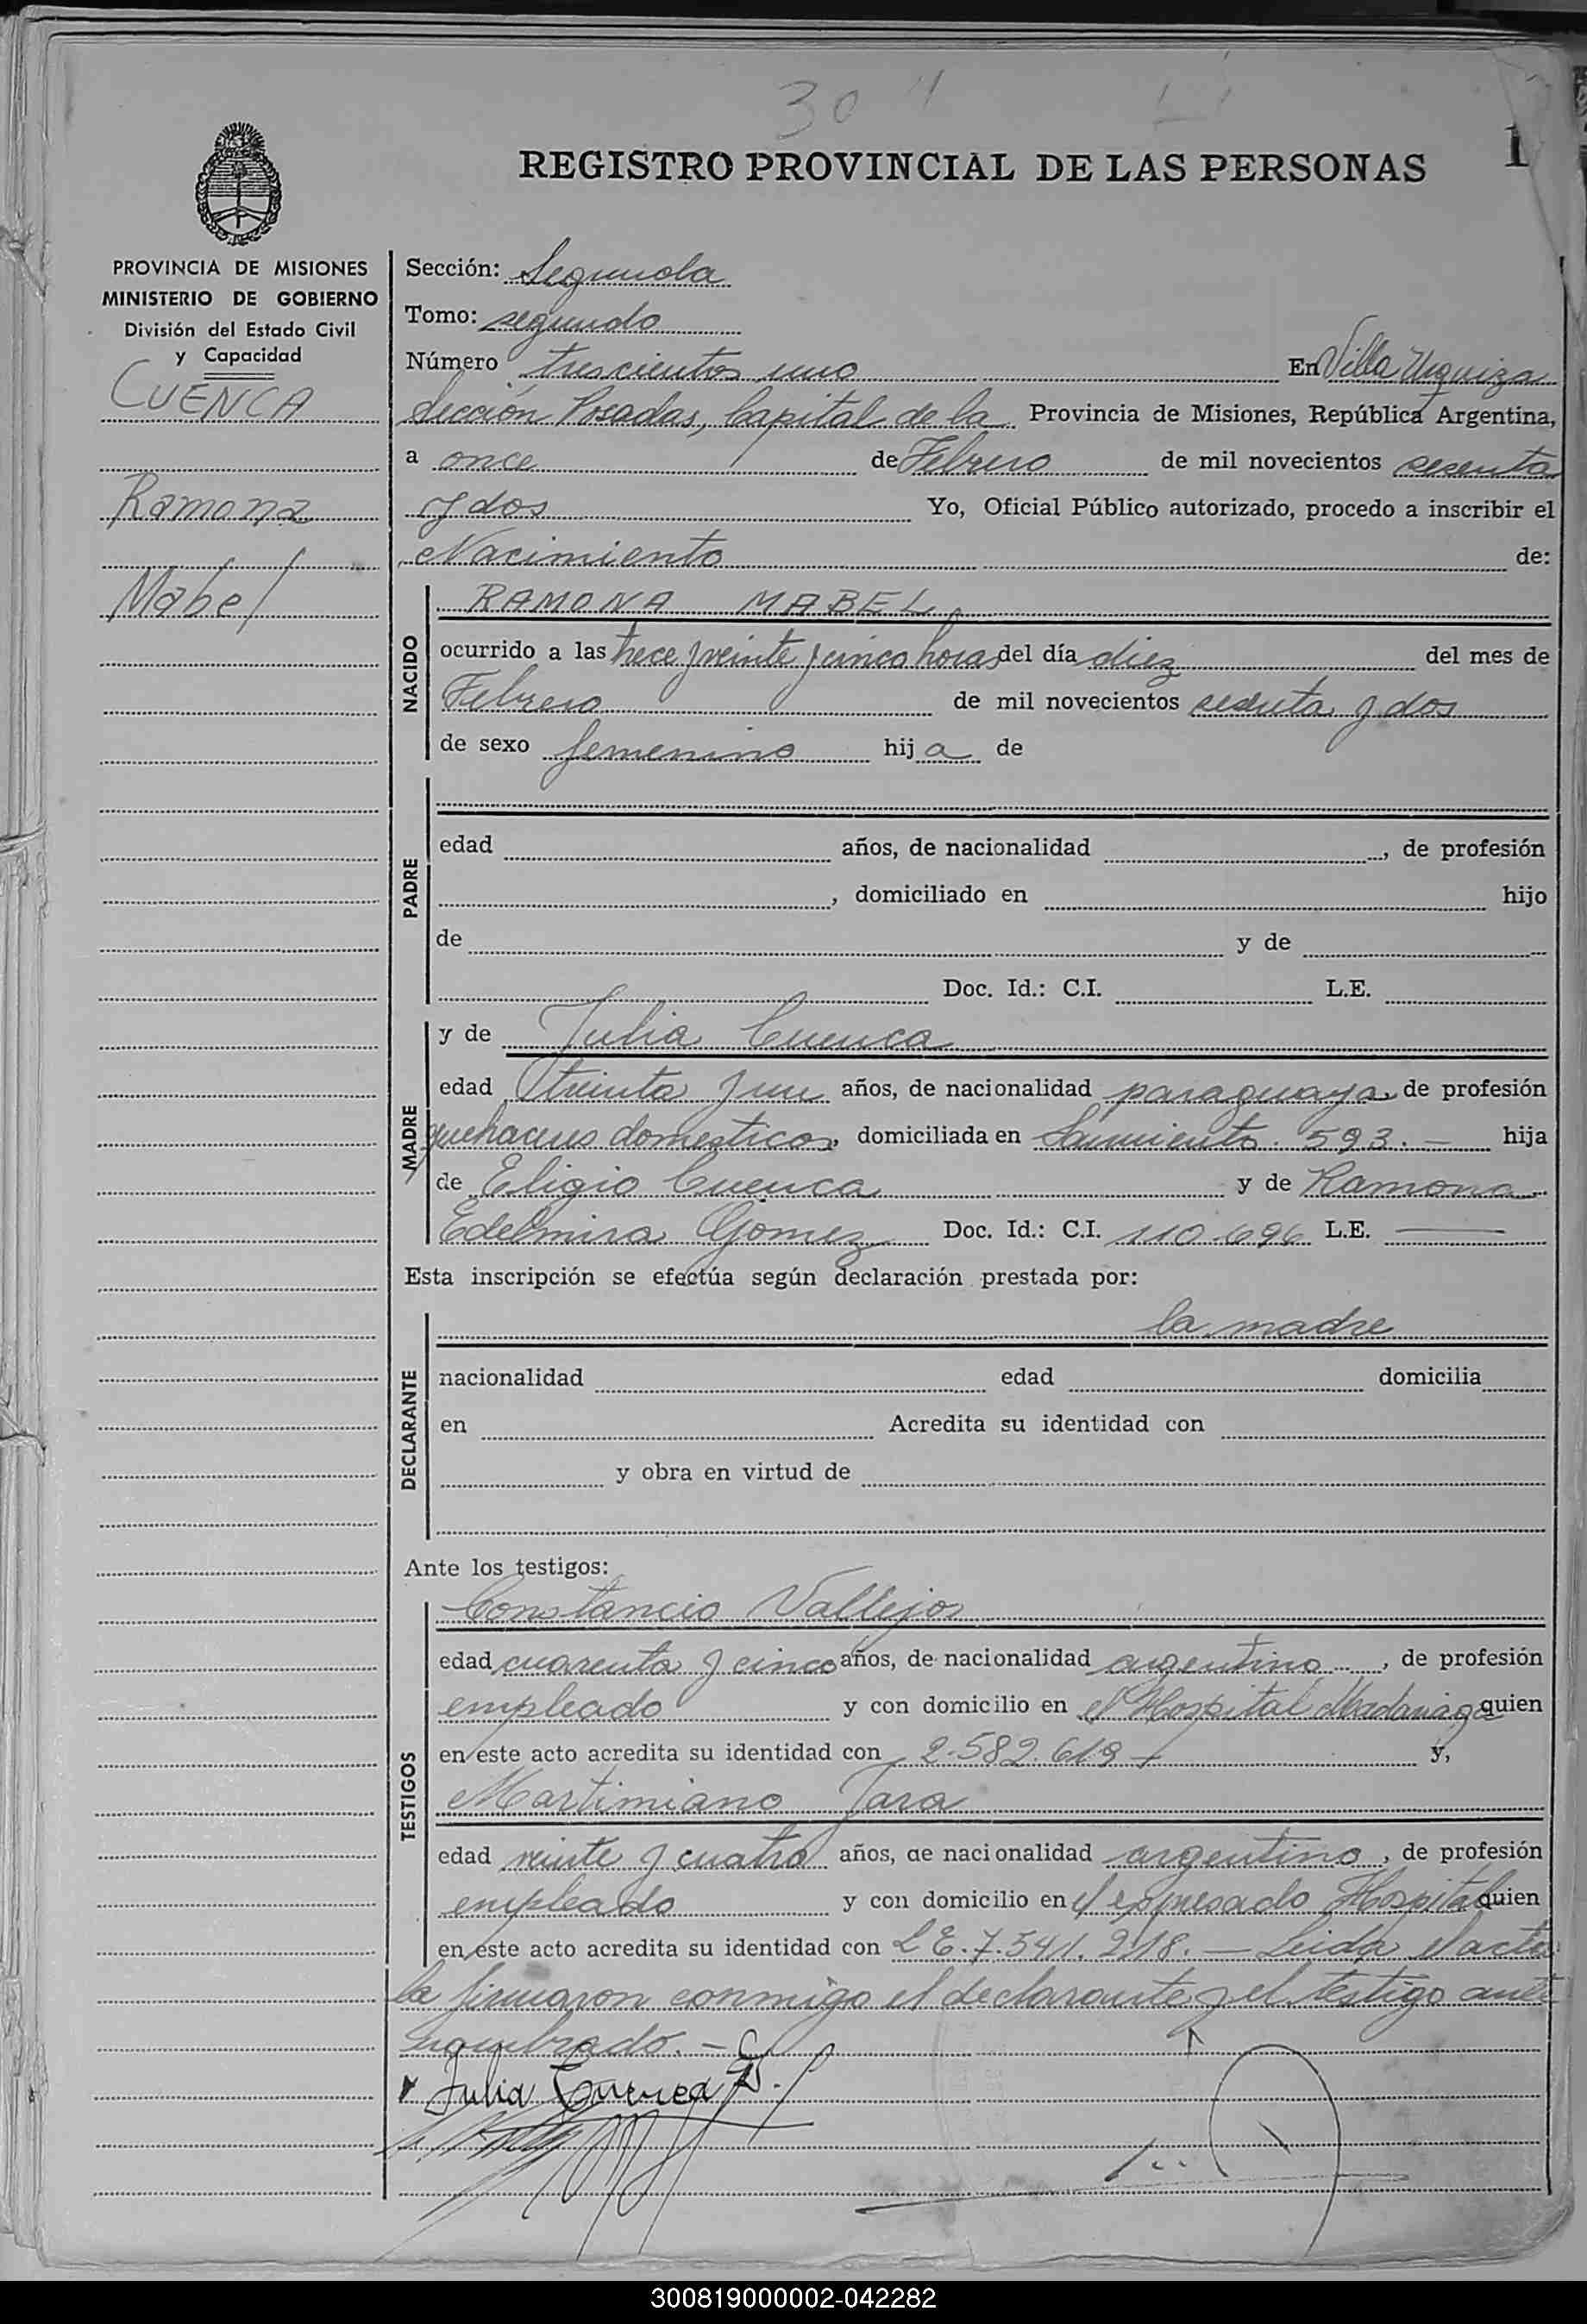 30
REGISTRO PROVINCIAL DE LAS PERSONAS
1
PROVINCIA DE MISIONES
MINISTERIO DE GOBIERNO
División del Estado Civil
y Capacidad
CUENCA
Ramona
Mabel
Sección: Segunda
Tomo: segundo
Número trescientos uno En Villa Urquiza
Sección Posadas, Capital de la Provincia de Misiones, República Argentina,
a once de Febrero de mil novecientos sesenta
y dos Yo, Oficial Público autorizado, procedo a inscribir el
Nacimiento de:
NACIDO
RAMONA MABEL
ocurrido a las trece y veinte y cinco horas del día diez del mes de
Febrero de mil novecientos sesenta y dos
de sexo femenino hija de
PADRE
edad años, de nacionalidad , de profesión
, domiciliado en hijo
de y de
Doc. Id.: C.I. L.E.
MADRE
y de Julia Cuenca
edad treinta y un años, de nacionalidad paraguaya, de profesión
quehaceres domesticos, domiciliada en Sarmiento 593.- hija
de Eligio Cuenca y de Ramona
Edelmira Gomez Doc. Id.: C.I. 110.696 L.E. —
Esta inscripción se efectúa según declaración prestada por:
DECLARANTE
la madre
nacionalidad edad domicilia
en Acredita su identidad con
y obra en virtud de
Ante los testigos:
TESTIGOS
Constancio Vallejos
edad cuarenta y cinco años, de nacionalidad argentino, de profesión
empleado y con domicilio en el Hospital Madariaga quien
en este acto acredita su identidad con 2.582.619 y,
Martimiano Jara
edad veinte y cuatro años, de nacionalidad argentino, de profesión
empleado y con domicilio en el expresado Hospital quien
en este acto acredita su identidad con L.E. 7.541.218. — Leida el acta
la firmaron conmigo el declarante y el testigo ante
nombrado. —
Julia Cuenca
300819000002-042282